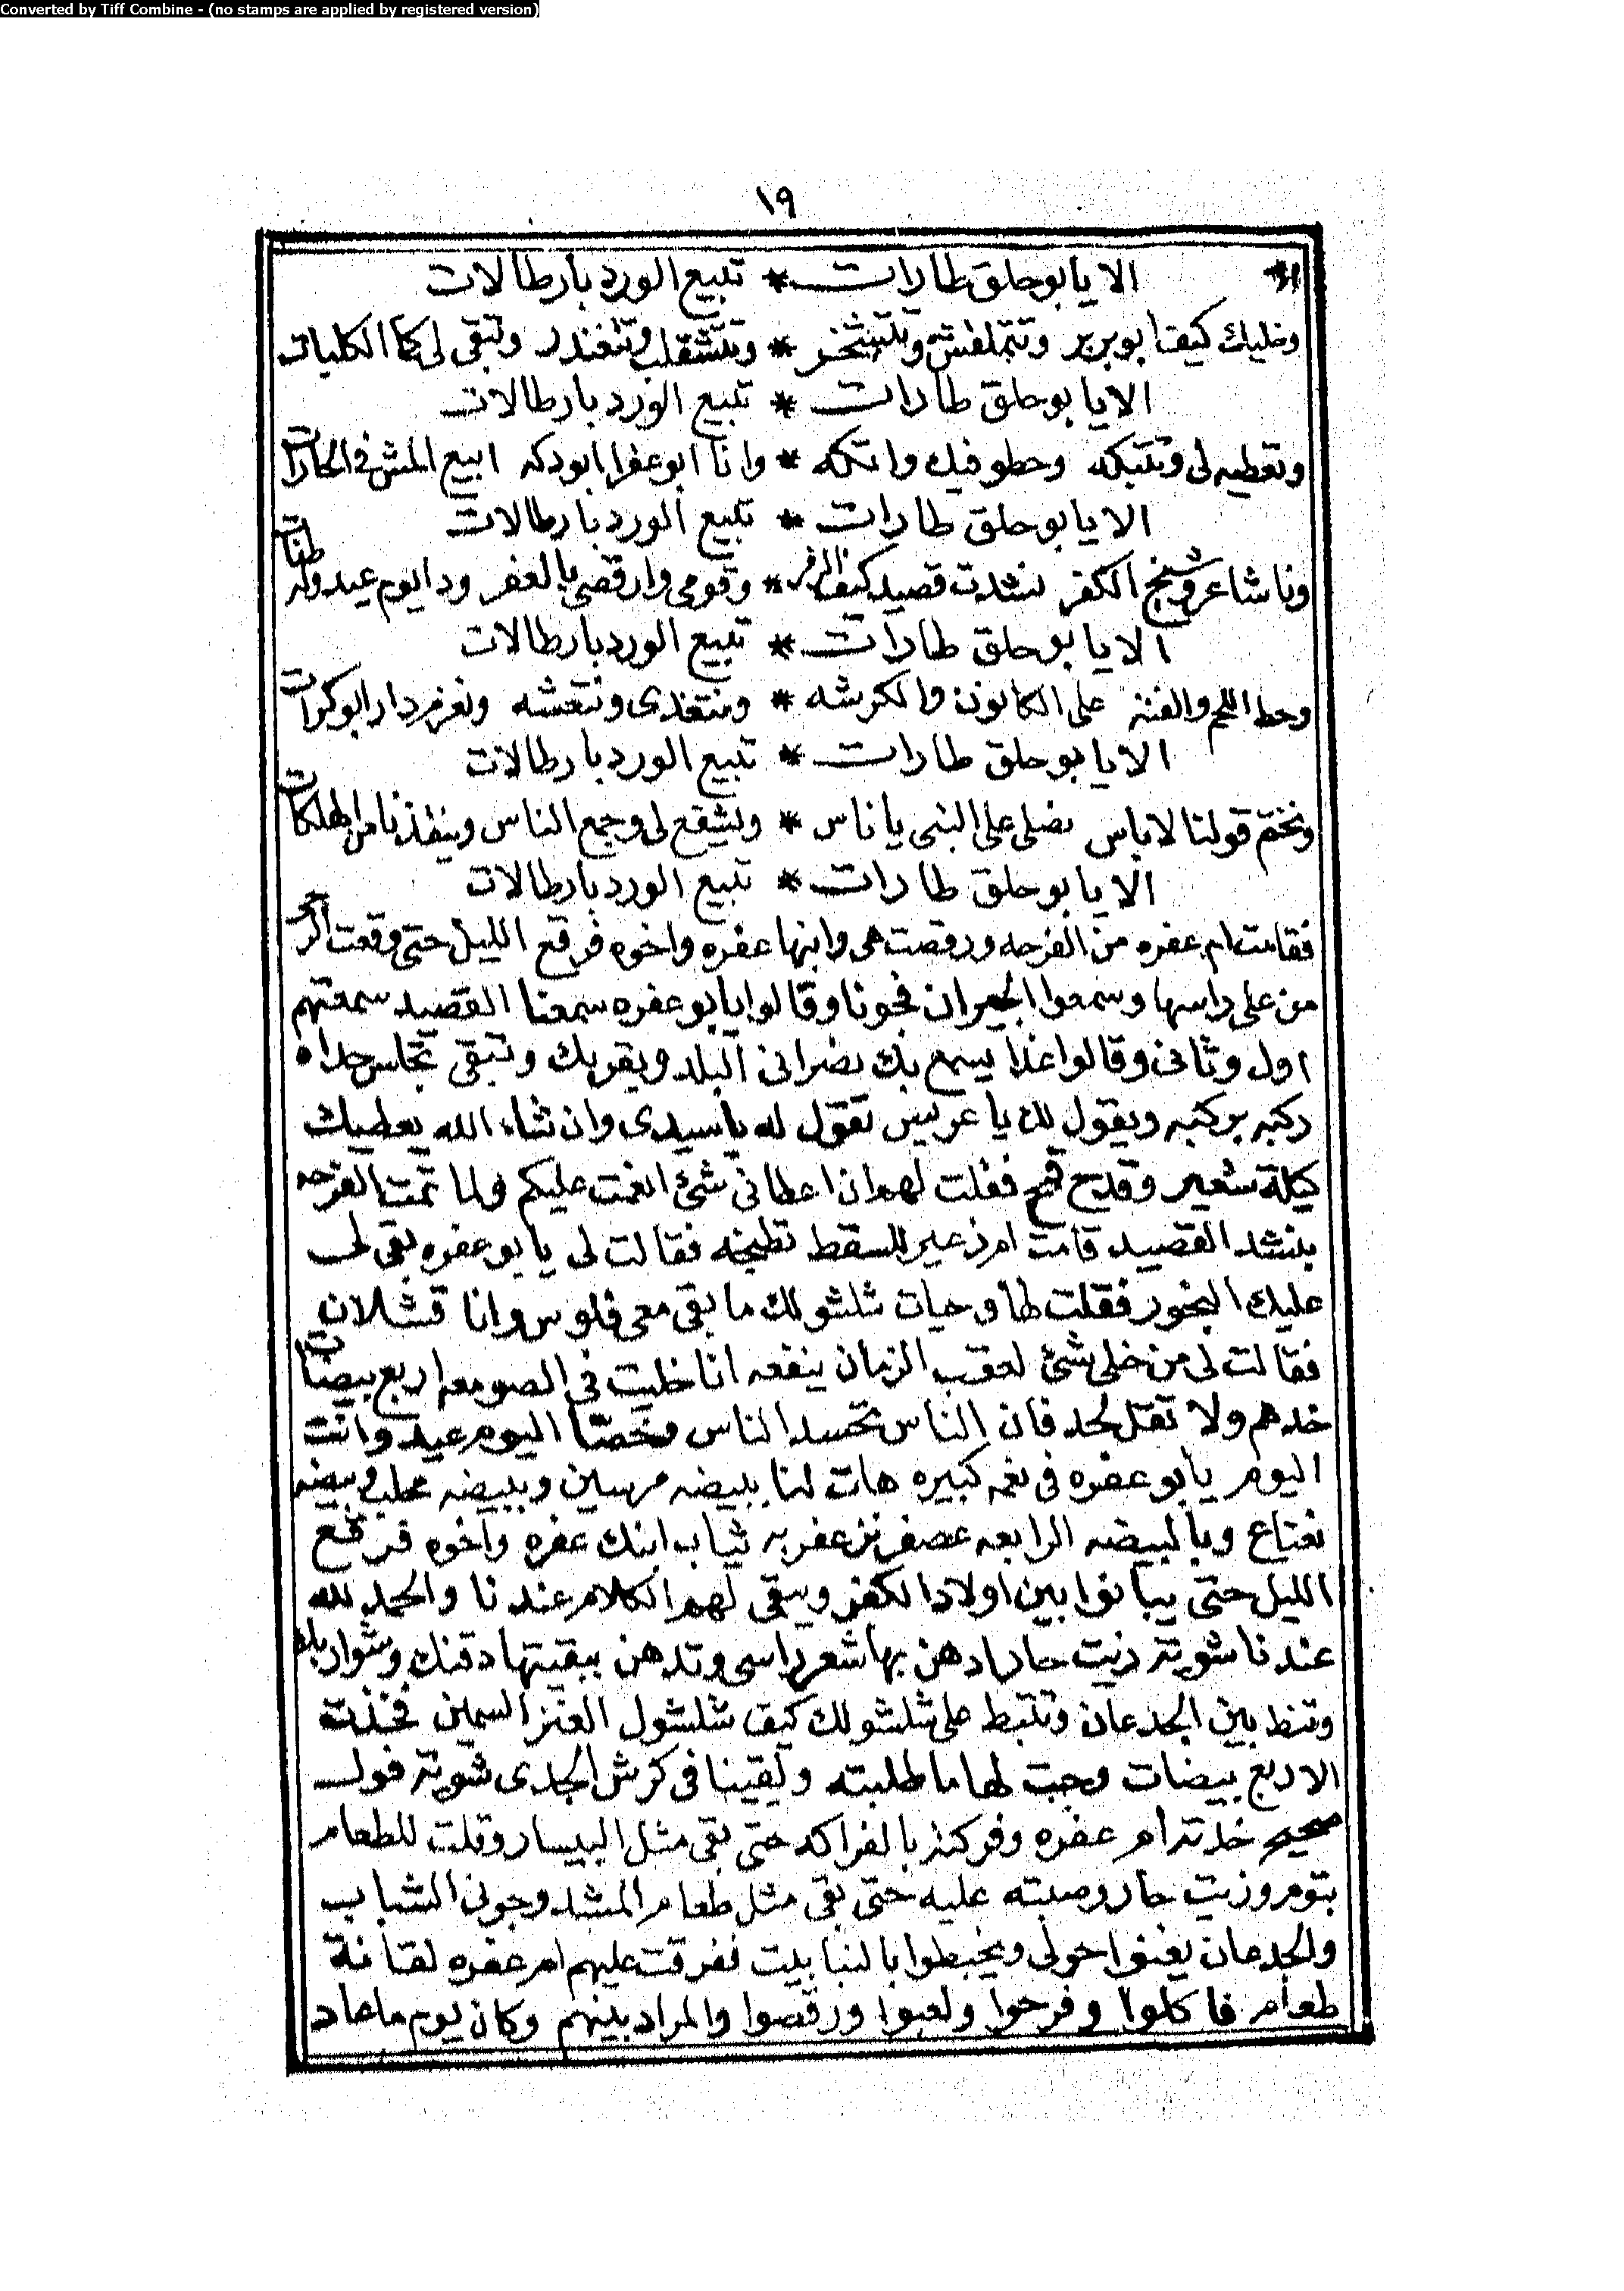 Converted by Tiff Combine - (no stamps are applied by registered version)
١٩
الا يابو حلق طارات * تبيع الورد بارطالات
وخليك كيف ابو بربر وتتملفش وتتشخر * وتتشقلب وتتغندر وتبقى لى كما الكلبات
الا يابو حلق طارات * تبيع الورد بارطالات
وتعطيه لى وتتبكه وحطو فيك واتكه * وانا ابو عفرا ابو دكه ابيع المش فى الحارات
الا يابو حلق طارات * تبيع الورد بارطالات
ونا شاعر وشيخ الكفر نشدت قصيد كيف * وقومى وارقصى بالعفر ودا يوم عيد وله طنات
الا يابو حلق طارات * تبيع الورد بارطالات
وحط اللحم والفته على الكانون والكرشه * ونتغدى ونتعشه ونعزم دار ابو كرات
الا يابو حلق طارات * تبيع الورد بارطالات
ونختم قولنا لاباس نصلى على النبى يا ناس * ويشفع لى وجمع الناس وينقذنا من المهلكات
الا يابو حلق طارات * تبيع الورد بارطالات
فقامت ام عفره من الفرحه ورقصت هى وابنها عفره واخوه فرقع الليل حتى وقعت
من على راسها وسمعوا الجيران فجونا وقالوا يابو عفره سمعنا القصيد سمعتهم
اول وثانى وقالوا غدا يسمع بك نصرانى البلد ويقربك وتبقى تجلس حداه
ركبه بركبه ويقول لك يا عريس تقول له يا سيدى وان شاء الله يعطيك
كيلة شعير وقدح قمح فقلت لهم ان اعطانى شئ انعمت عليكم ولما تمت الفرحه
بنشد القصيد قامت ام زعير للسقط تطبخه فقالت لى يا بو عفره بقى لى
عليك البخور فقلت لها وحيات شلشولك ما بقى معى فلوس وانا قشلان
فقالت لى من خلى شئ لعقب الزمان ينفعه انا خليت فى الصومعه اربع بيضات
خدهم ولا تقل لحد فان الناس تحسد الناس وخصتا اليوم عيد وانت
اليوم يابو عفره فى نعمه كبيره هات لنا ببيضه مرسين وببيضه محلب وبيضه
نعناع وبالبيضه الرابعه عصفر نزعفر به ثياب ابنك عفره واخوه فرقع
الليل حتى يبانوا بين اولاد الكفر ويبقى لهم الكلام عندنا والحمد لله
عندنا شوية زيت حار ادهن بها شعر راسى وتدهن ببقيتها دقنك وشواربك
وتنط بين الجدعان وتتبط على شلشولك كيف شلشول العنز السمين فخدت
الاربع بيضات وجبت لها ما طلبته ولقينا فى كرش الجدى شوية فول
صحيح خدته ام عفره وفركته بالفراكه حتى بقى مثل البيسار وقلت للطعام
بتوم وزيت حار وصبته عليه حتى بقى مثل طعام المشد وجونى الشباب
والجدعان يغنوا حولى ويخبطوا بالنبابيت ففرقت عليهم ام عفره لقانة
طعام فاكلوا وفرحوا ولعبوا ورقصوا والمراد بينهم وكان يوم ما عاد